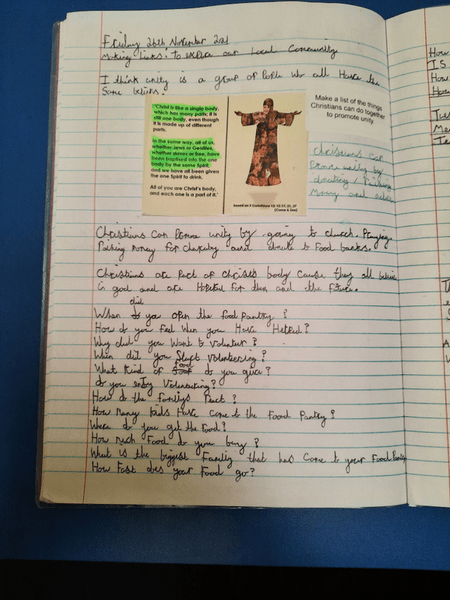 Friday 26th November 2021
Making links: To explain our Local Community
I think unity is a group of People who all Have the
Same belifs.
'Christ is like a single body,
which has many parts; it is
still one body, even though
it is made up of different
parts.
In the same way, all of us,
whether Jews or Gentiles,
whether slaves or free, have
been baptised into the one
body by the same Spirit,
and we have all been given
the one Spirit to drink.
All of you are Christ's body,
and each one is a part of it.'
based on 1 Corinthians 12: 12-31
(Come & See)
Make a list of the things
Christians can do together
to promote unity.
Christians can
unity by
Money and
Christians can unity by going to church. Praying
money for charaty and donate to Food banks.
Christians are Part of body cause they all belive
in god and are Hopeful for then and the Future.
did
When do you open the food pantry?
How do you feel when you Have Helped?
Why did you Want to volunteer?
When did you Start volunteering?
What kind of food do you give?
do you enjoy Volenteering?
How do the familys react?
How many kids Have come to the Food Pantry?
Where do you get the Food?
How much Food do you bring?
What is the biggest Family that has come to your Food Pantry
How Fast does your Food go?